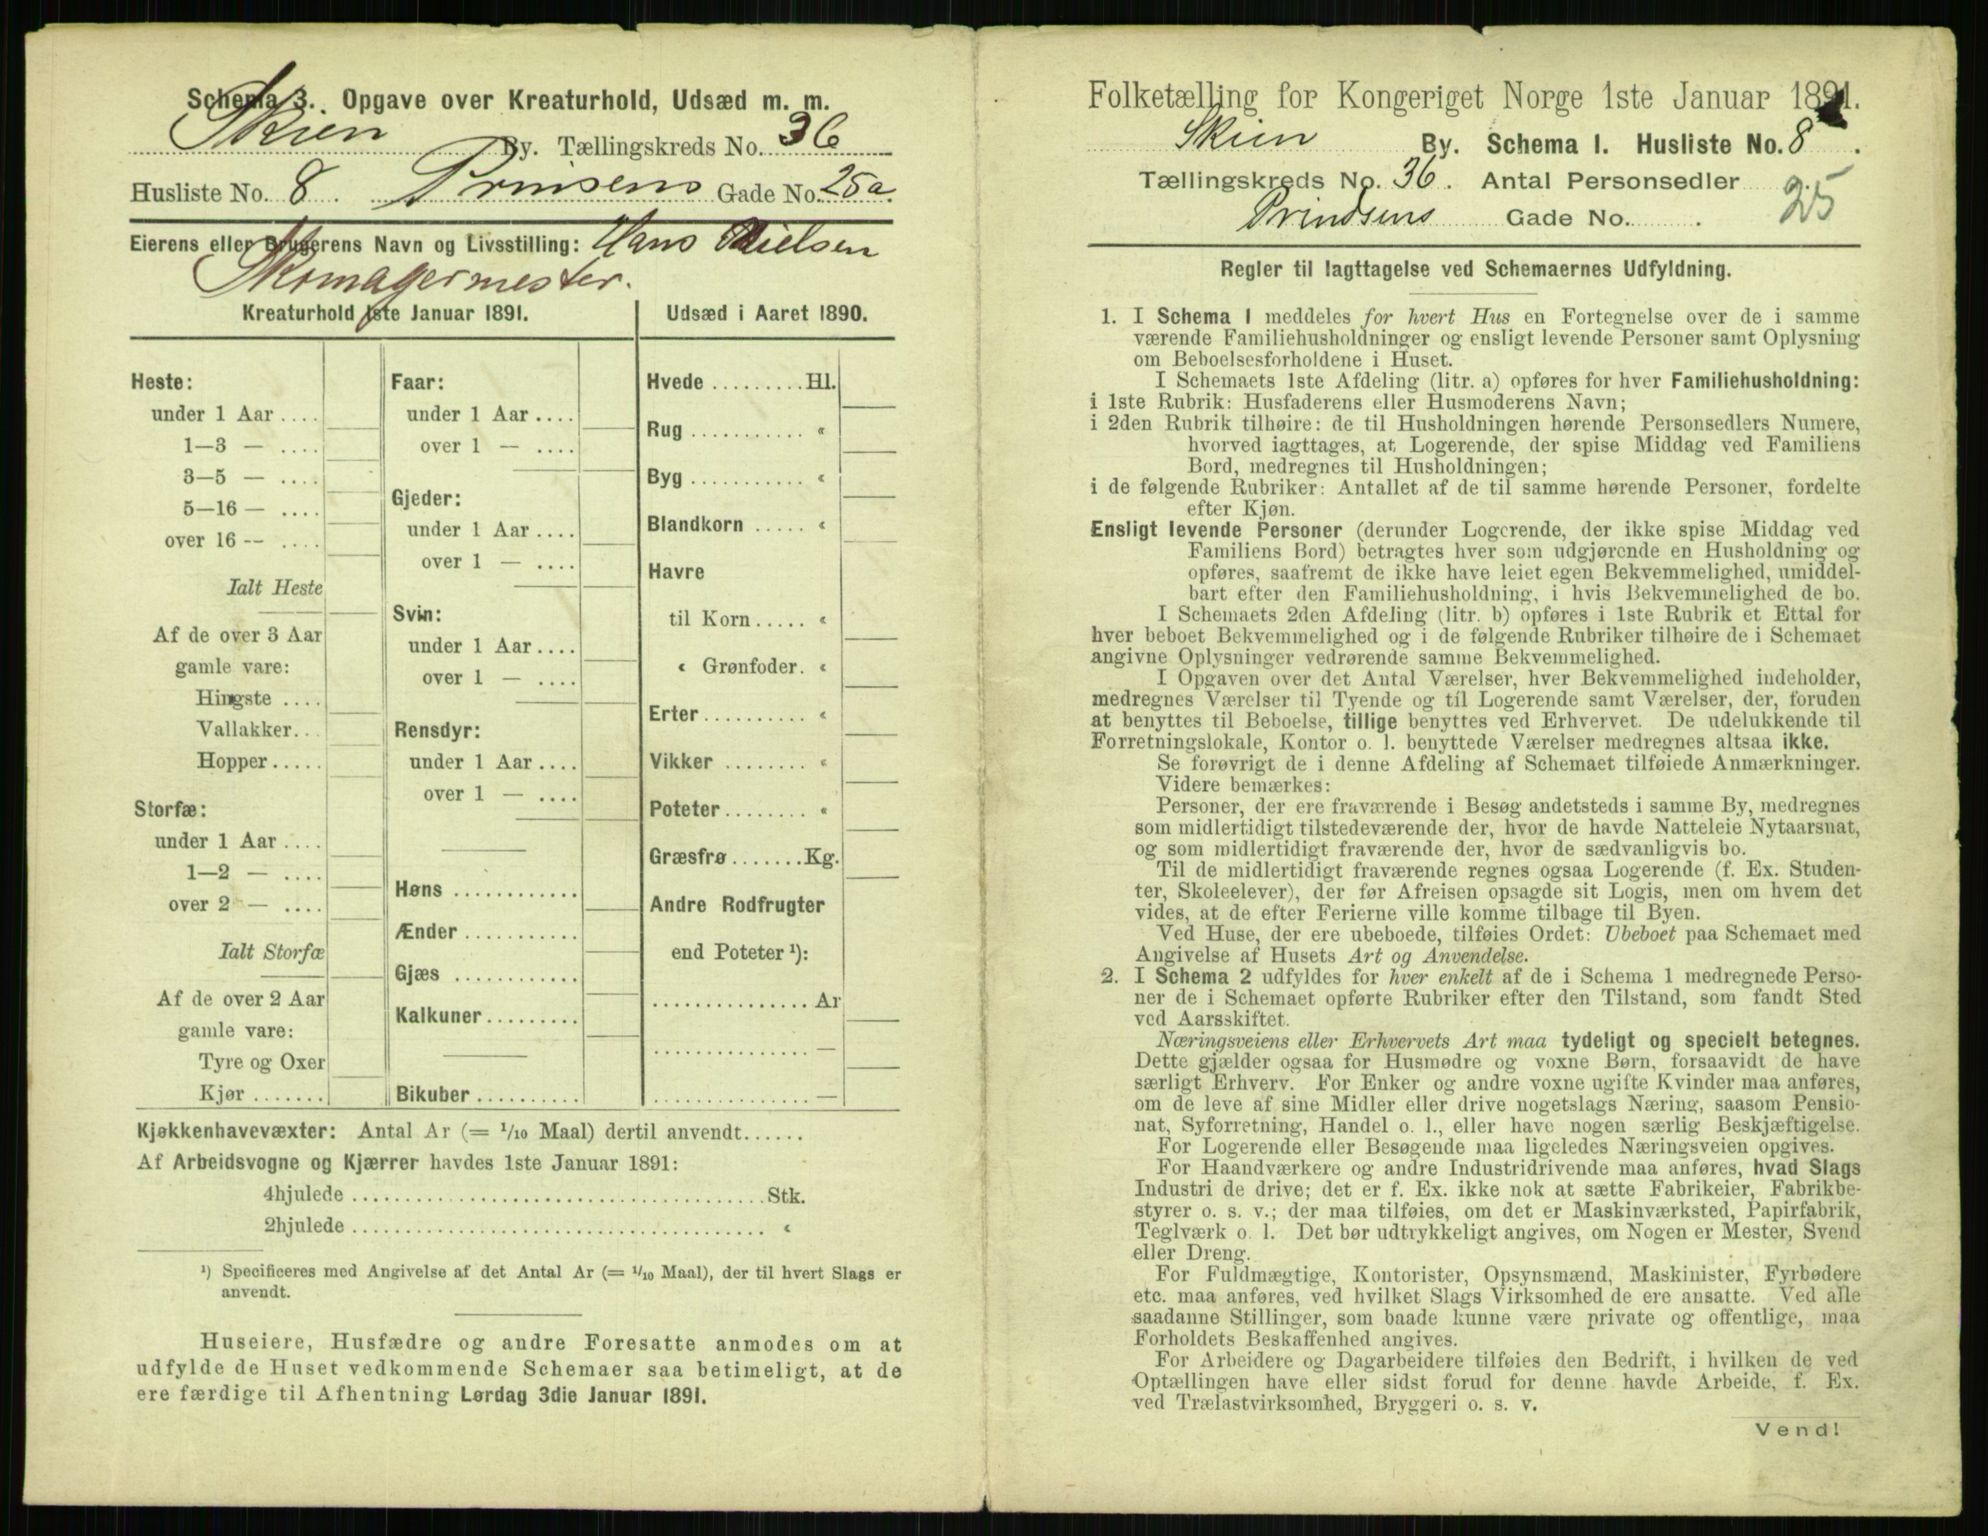 Schema 3. Opgave over Kreaturhold, Udsæd m. m.
Skien By. Tællingskreds No. 36
Husliste No. 8. Prinsens Gade No. 25a
Eierens eller Brugerens Navn og Livsstilling: Hans Nielsen
Skomagermester.
Kreaturhold 1ste Januar 1891.
Heste:
under 1 Aar ....
1—3 — ....
3—5 — ....
5—16 — ....
over 16 -- ....
Ialt Heste
Af de over 3 Aar
gamle vare:
Hingste ....
Vallakker...
Hopper.....
Storfæ:
under 1 Aar ....
1—2 — ....
over 2 — ....
Ialt Storfæ
Af de over 2 Aar
gamle vare:
Tyre og Oxer
Kjør .......
Faar:
under 1 Aar ....
over 1 — ....
Gjeder:
under 1 Aar ....
over 1 — ....
Svin:
under 1 Aar ....
over 1 — ....
Rensdyr:
under 1 Aar ....
over 1 — ....
Høns ............
Ænder ...........
Gjæs ............
Kalkuner.........
Bikuber ..........
Udsæd i Aaret 1890.
Hvede .........Hl.
Rug ........... “
Byg ........... “
Blandkorn ..... “
Havre
til Korn..... “
“ Grønfoder. “
Erter.......... “
Vikker ........ “
Poteter ........ “
Græsfrø .......Kg.
Andre Rodfrugter
end Poteter ¹):
............... Ar
............... —
............... —
Kjøkkenhavevæxter: Antal Ar (= 1/10 Maal) dertil anvendt......
Af Arbeidsvogne og Kjærrer havdes 1ste Januar 1891:
4hjulede ........................................Stk.
2hjulede ........................................ “
¹) Specificeres med Angivelse af det Antal Ar (= 1/10 Maal), der til hvert Slags er
anvendt.
Huseiere, Husfædre og andre Foresatte anmodes om at
udfylde de Huset vedkommende Schemaer saa betimeligt, at de
ere færdige til Afhentning Lørdag 3die Januar 1891.
Folketælling for Kongeriget Norge 1ste Januar 1891.
Skien By. Schema 1. Husliste No. 8.
Tællingskreds No. 36. Antal Personsedler .
Prindsens Gade No. . 25
Regler til Iagttagelse ved Schemaernes Udfyldning.
1. I Schema 1 meddeles for hvert Hus en Fortegnelse over de i samme
værende Familiehusholdninger og ensligt levende Personer samt Oplysning
om Beboelsesforholdene i Huset.
I Schemaets 1ste Afdeling (litr. a) opføres for hver Familiehusholdning:
i 1ste Rubrik: Husfaderens eller Husmoderens Navn;
i 2den Rubrik tilhøire: de til Husholdningen hørende Personsedlers Numere,
hvorved iagttages, at Logerende, der spise Middag ved Familiens
Bord, medregnes til Husholdningen;
i de følgende Rubriker: Antallet af de til samme hørende Personer, fordelte
efter Kjøn.
Ensligt levende Personer (derunder Logerende, der ikke spise Middag ved
Familiens Bord) betragtes hver som udgjørende en Husholdning og
opføres, saafremt de ikke have leiet egen Bekvemmelighed, umiddel-
bart efter den Familiehusholdning, i hvis Bekvemmelighed de bo.
I Schemaets 2den Afdeling (litr. b) opføres i 1ste Rubrik et Ettal for
hver beboet Bekvemmelighed og i de følgende Rubriker tilhøire de i Schemaet
angivne Oplysninger vedrørende samme Bekvemmelighed.
I Opgaven over det Antal Værelser, hver Bekvemmelighed indeholder,
medregnes Værelser til Tyende og til Logerende samt Værelser, der, foruden
at benyttes til Beboelse, tillige benyttes ved Erhvervet. De udelukkende til
Forretningslokale, Kontor o. l. benyttede Værelser medregnes altsaa ikke.
Se forøvrigt de i denne Afdeling af Schemaet tilføiede Anmærkninger.
Videre bemærkes:
Personer, der ere fraværende i Besøg andetsteds i samme By, medregnes
som midlertidigt tilstedeværende der, hvor de havde Natteleie Nytaarsnat,
og som midlertidigt fraværende der, hvor de sædvanligvis bo.
Til de midlertidigt fraværende regnes ogsaa Logerende (f. Ex. Studen-
ter, Skoleelever), der før Afreisen opsagde sit Logis, men om hvem det
vides, at de efter Ferierne ville komme tilbage til Byen.
Ved Huse, der ere ubeboede, tilføies Ordet: Ubeboet paa Schemaet med
Angivelse af Husets Art og Anvendelse.
2. I Schema 2 udfyldes for hver enkelt af de i Schema 1 medregnede Perso-
ner de i Schemaet opførte Rubriker efter den Tilstand, som fandt Sted
ved Aarsskiftet.
Næringsveiens eller Erhvervets Art maa tydeligt og specielt betegnes.
Dette gjælder ogsaa for Husmødre og voxne Børn, forsaavidt de have
særligt Erhverv. For Enker og andre voxne ugifte Kvinder maa anføres,
om de leve af sine Midler eller drive nogetslags Næring, saasom Pensio-
nat, Syforretning, Handel o. l., eller have nogen særlig Beskjæftigelse.
For Logerende eller Besøgende maa ligeledes Næringsveien opgives.
For Haandværkere og andre Industridrivende maa anføres, hvad Slags
Industri de drive; det er f. Ex. ikke nok at sætte Fabrikeier, Fabrikbe-
styrer o. s. v.; der maa tilføies, om det er Maskinværksted, Papirfabrik,
Teglværk o. l. Det bør udtrykkeligt angives, om Nogen er Mester, Svend
eller Dreng.
For Fuldmægtige, Kontorister, Opsynsmænd, Maskinister, Fyrbødere
etc. maa anføres, ved hvilket Slags Virksomhed de ere ansatte. Ved alle
saadanne Stillinger, som baade kunne være private og offentlige, maa
Forholdets Beskaffenhed angives.
For Arbeidere og Dagarbeidere tilføies den Bedrift, i hvilken de ved
Optællingen have eller sidst forud for denne havde Arbeide, f. Ex.
ved Trælastvirksomhed, Bryggeri o. s. v.
Vend!